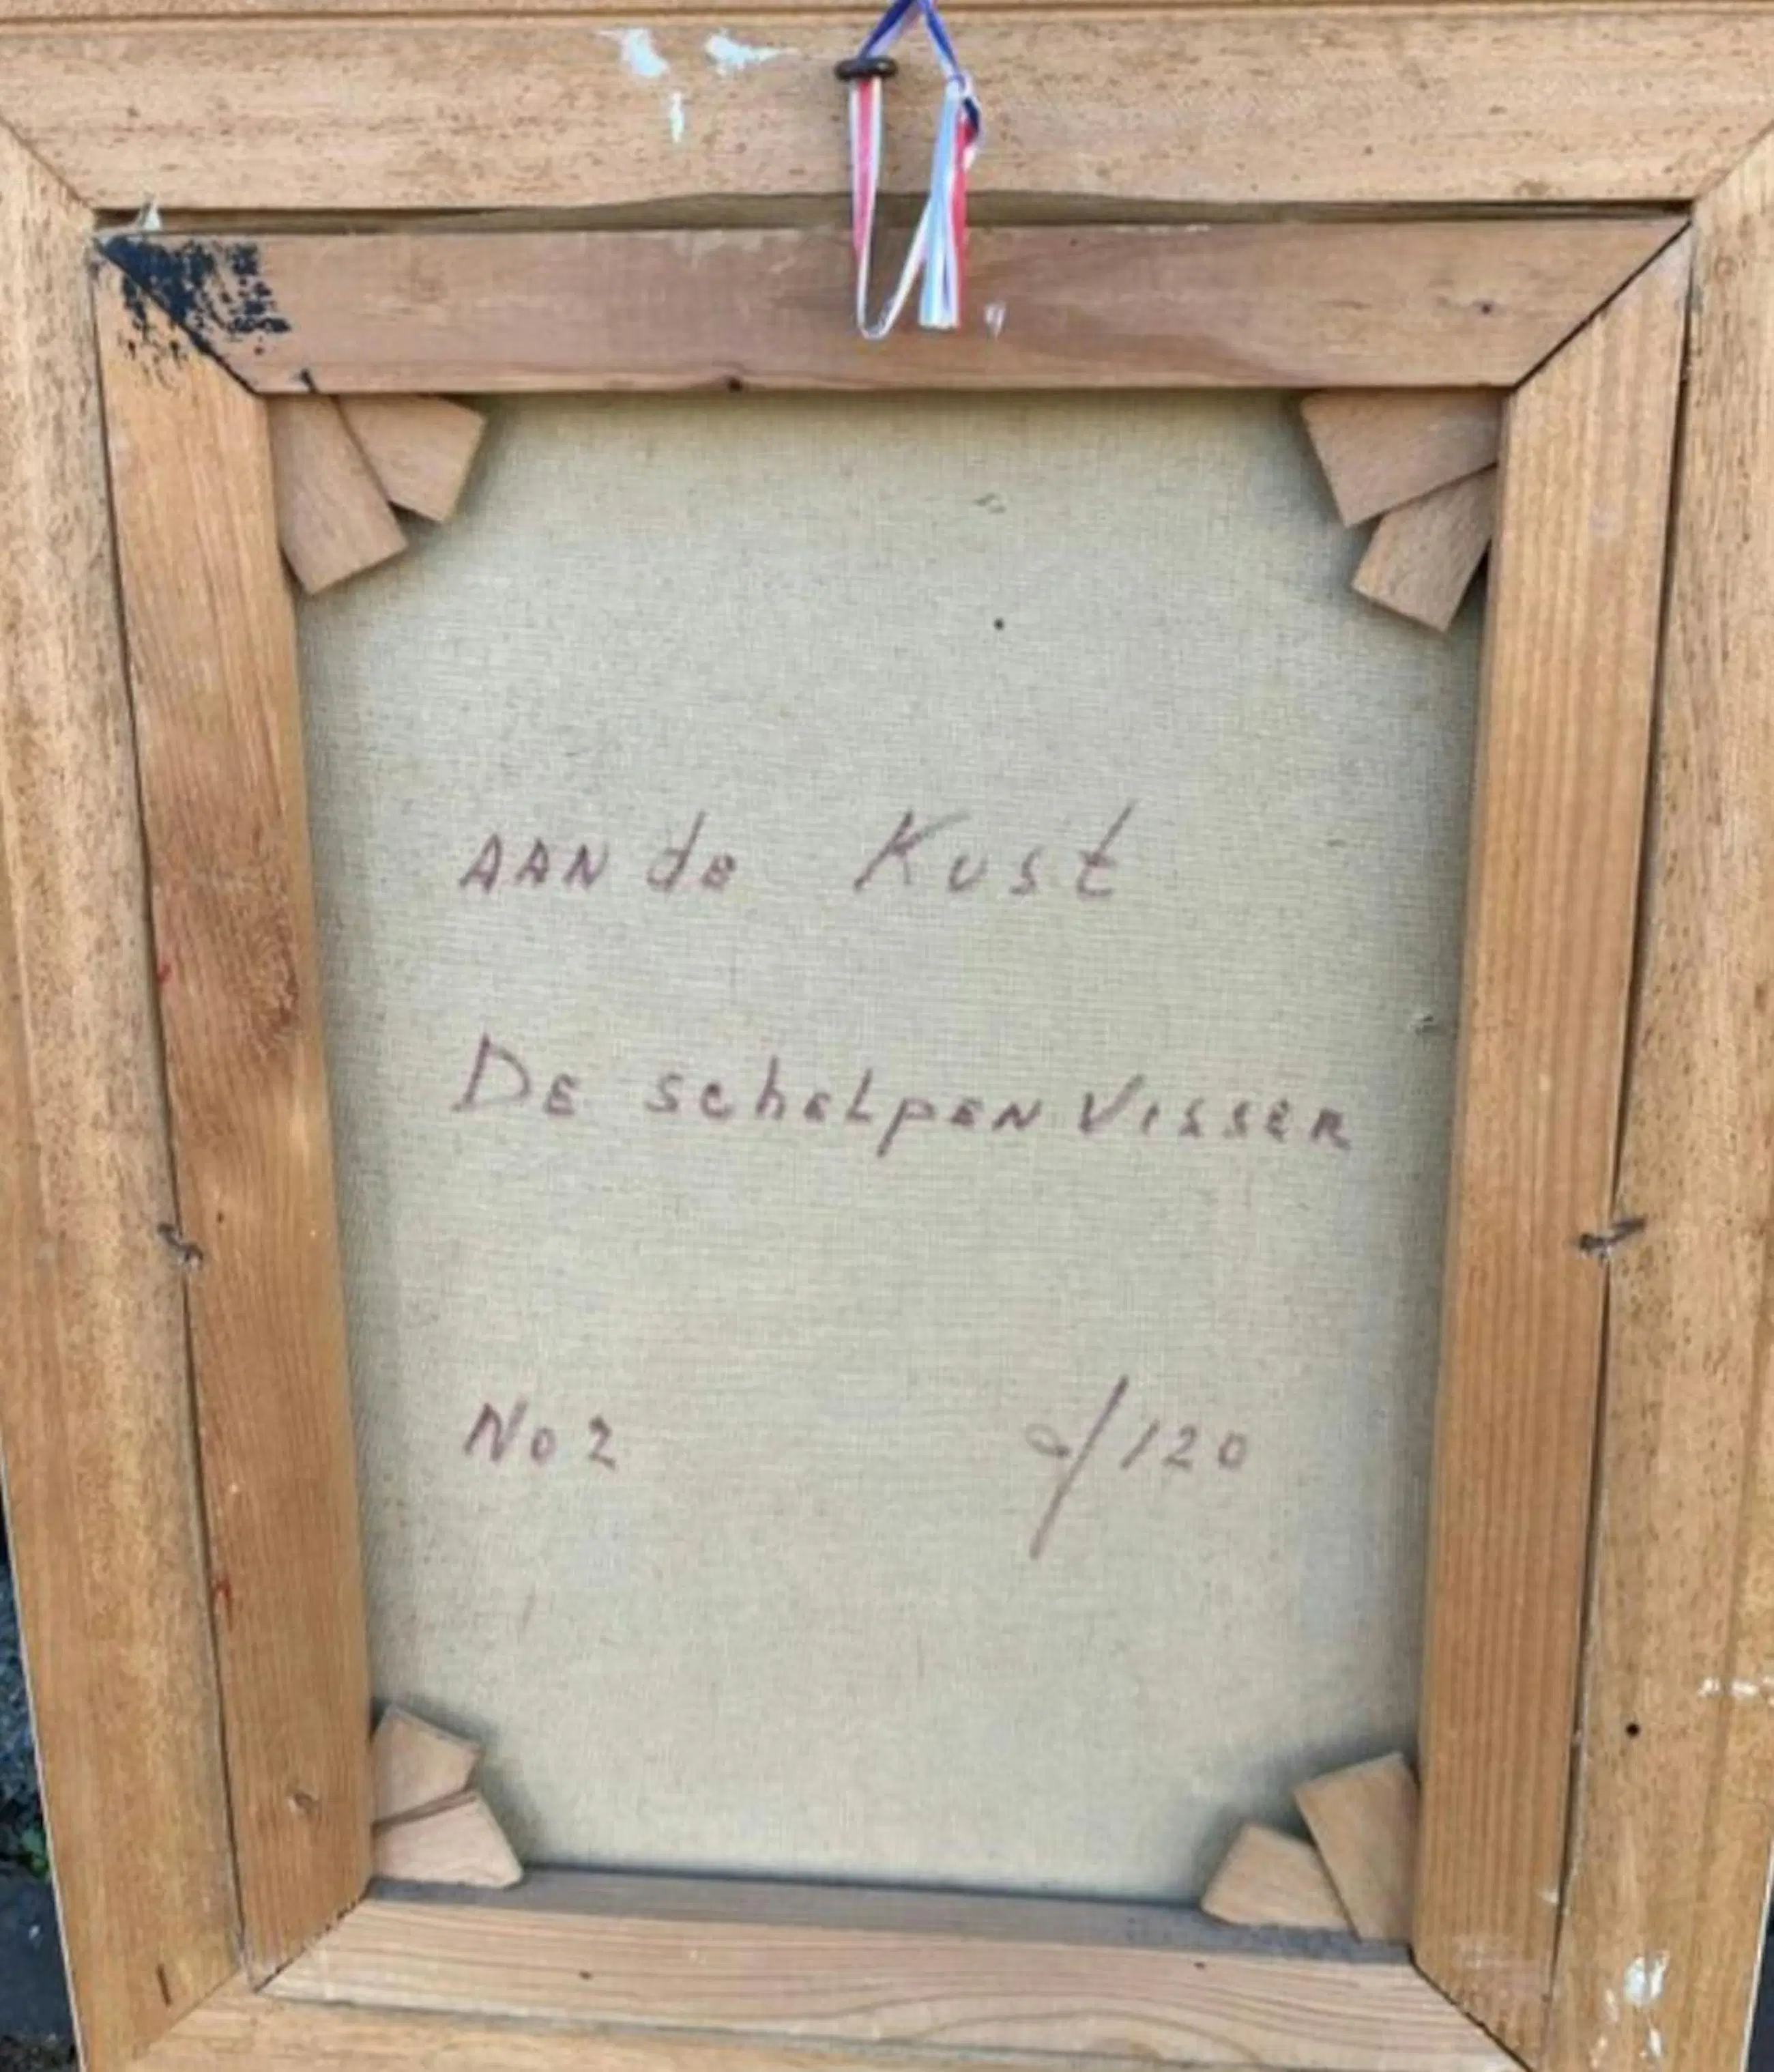 AAN de Kust
De schelpen Visser
No 2 /120